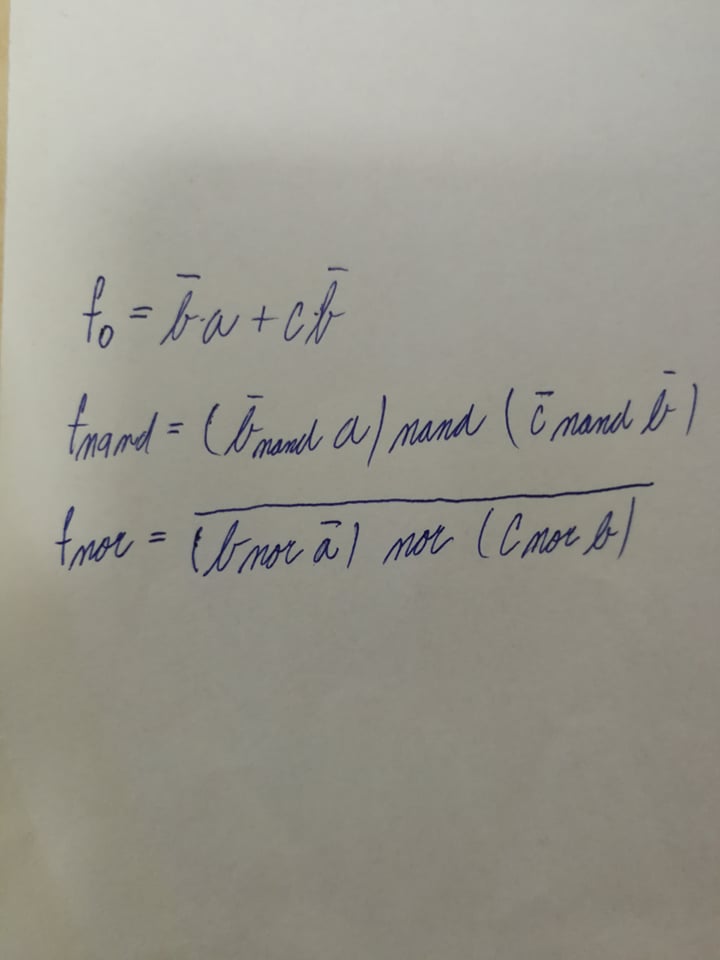 f₀ = b̄·a + c·b̄
f_nand = (b̄ nand a) nand (c̄ nand b̄)
f_nor = \overline{(b nor ā) nor (c nor b)}